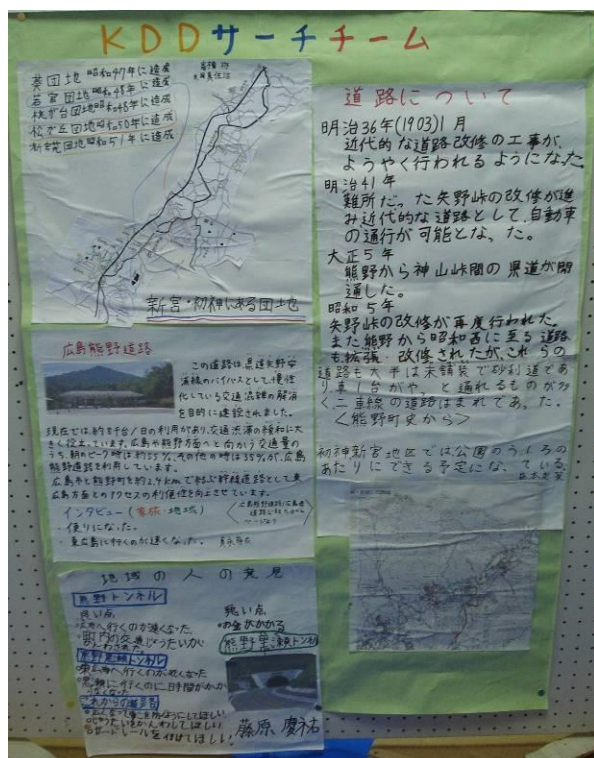 KDDサーチチーム
葵団地 昭和47年に造成
若宮団地昭和48年に造成
桃が台団地昭和48年に造成
松が丘団地昭和50年に造成
団地昭和51年に造成
新宮・初神にある団地
広島熊野道路
この道路は県道矢野安
浦線のバイパスとして、慢性
化している交通混雑の解消
を目的に建設されました。
現在では、約8千台/日の利用があり、交通渋滞の緩和に大
きく役立っています。広島や熊野方面へと向かう交通量の
うち、朝のピーク時は約55%、その他の時は35%が、広島
熊野道路を利用しています。
広島市と熊野町を約2.9kmで結ぶ幹線道路として東
広島方面とのアクセスの利便性を向上させています。
インタビュー(家族・地域)
・便りになった。
・東広島に行くのが速くなった。
地域の人の発見
熊野トンネル
良い点
へ行くのが速くなった。
町内の交通じゅうたいが
かんわされた。
悪い点
お金がかかる
熊野黒瀬トンネル
熊野黒瀬トンネル
へ行くのが近くなった
黒瀬に行くのに時間がかか
らなくなった
これからの
してほしい
ガードレールを付けてほしい!
藤原 慶祐
道路について
明治36年(1903)1月
近代的な道路改修の工事が、
ようやく行われるようになった。
明治41年
難所だった矢野峠の改修が進
み近代的な道路として、自動車
の通行が可能となった。
大正5年
熊野から神山峠間の県道が開
通した。
昭和5年
矢野峠の改修が再度行われた。
また熊野から昭和西に至る道路
も拡張・改修されたが、これらの
道路も大半は未舗装で砂利道であ
り、車1台がやっと通れるものが多
く、二車線の道路はまれであった。
<熊野町史から>
初神新宮地区では公園のうしろの
あたりにできる予定になっている。